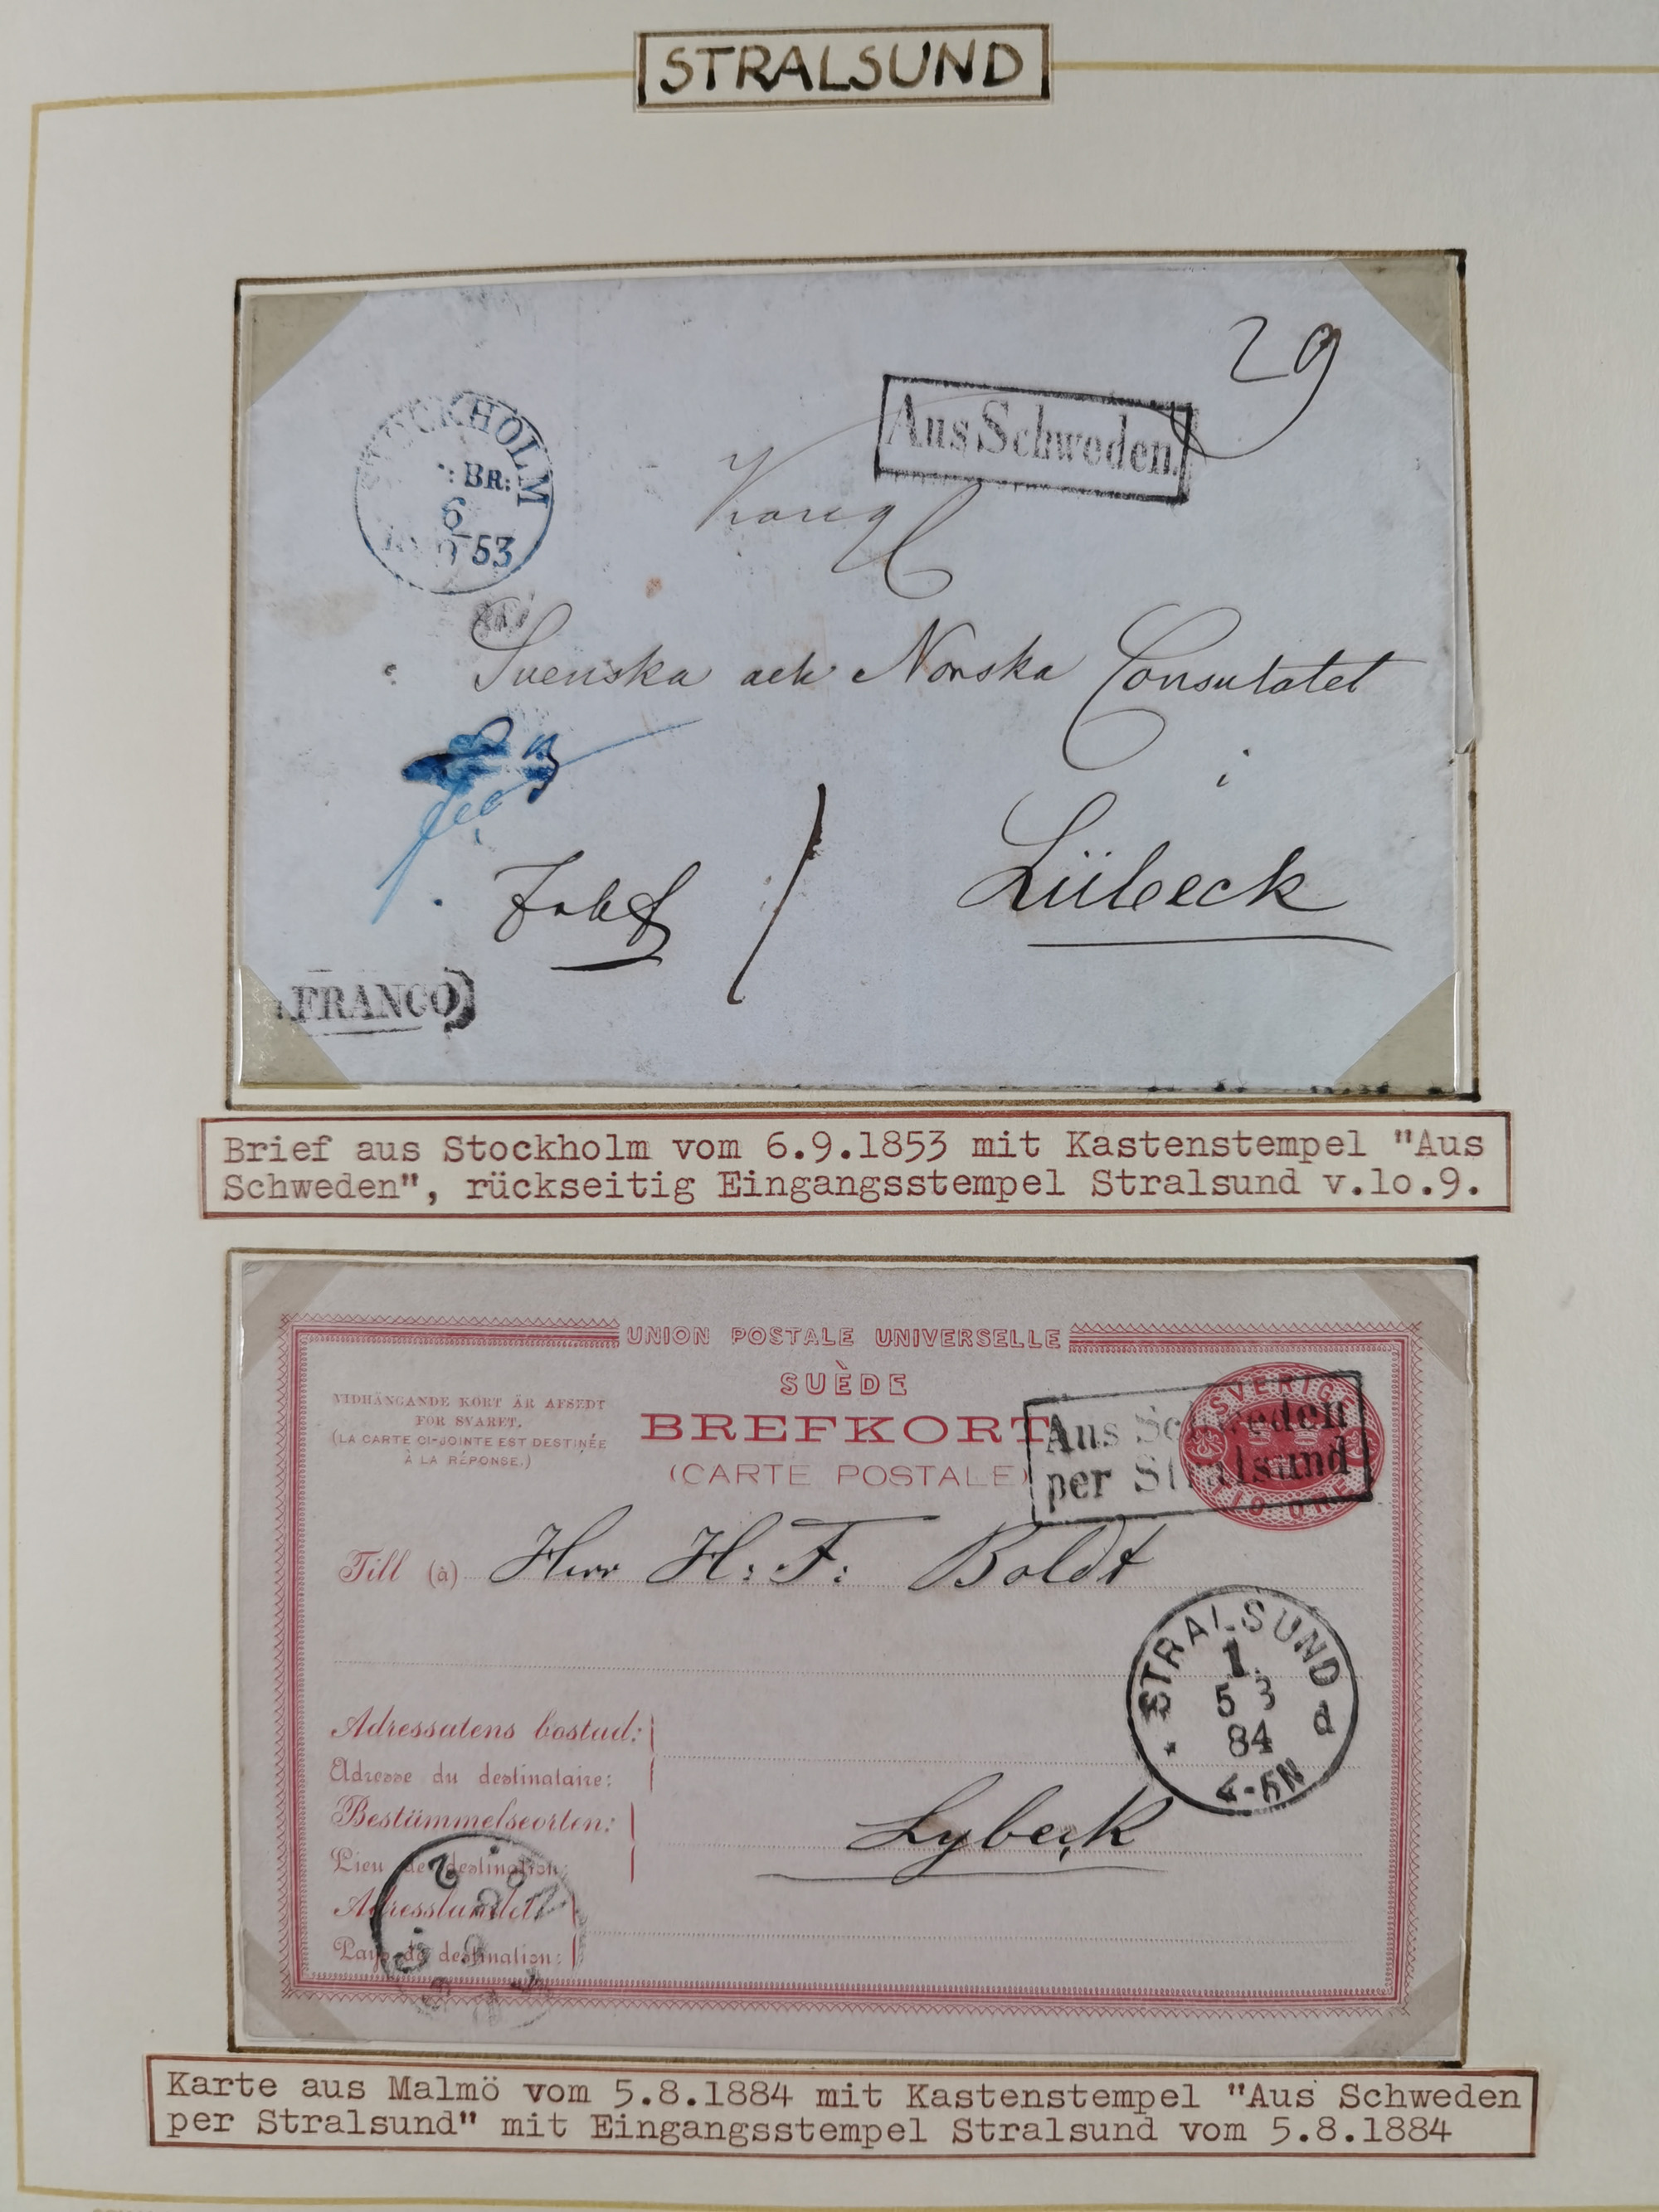 STRALSUND
29
Aus Schweden.
STOCKHOLM
BR:
6
53
Svenska och Norska Consulatet
i
Lübeck
FRANCO
Brief aus Stockholm vom 6.9.1853 mit Kastenstempel "Aus
Schweden", rückseitig Eingangsstempel Stralsund v.lo.9.
UNION POSTALE UNIVERSELLE
SUÈDE
VIDHÄNGANDE KORT ÄR AFSEDT
FÖR SVARET.
(LA CARTE CI-JOINTE EST DESTINÉE
À LA RÉPONSE.)
BREFKORT
(CARTE POSTALE)
SVERIGE
TIO ÖRE
Aus Schweden
per Stralsund
Till (à) Herr H: F: Boldt
STRALSUND
1.
5 3
84
4-5N
d
Adressatens bostad:
Adresse du destinataire:
Bestämmelseorten:
Lybeck
Lieu de destination:
Adresslandet:
Pays de destination:
Karte aus Malmö vom 5.8.1884 mit Kastenstempel "Aus Schweden
per Stralsund" mit Eingangsstempel Stralsund vom 5.8.1884